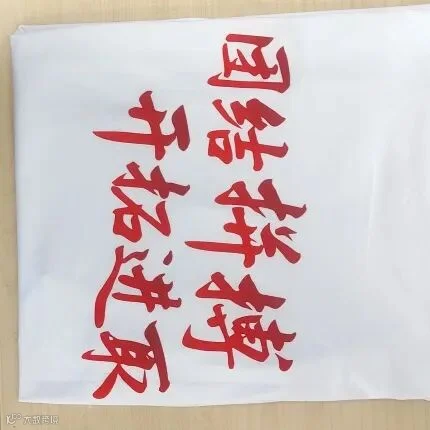 团结拼搏
开拓进取